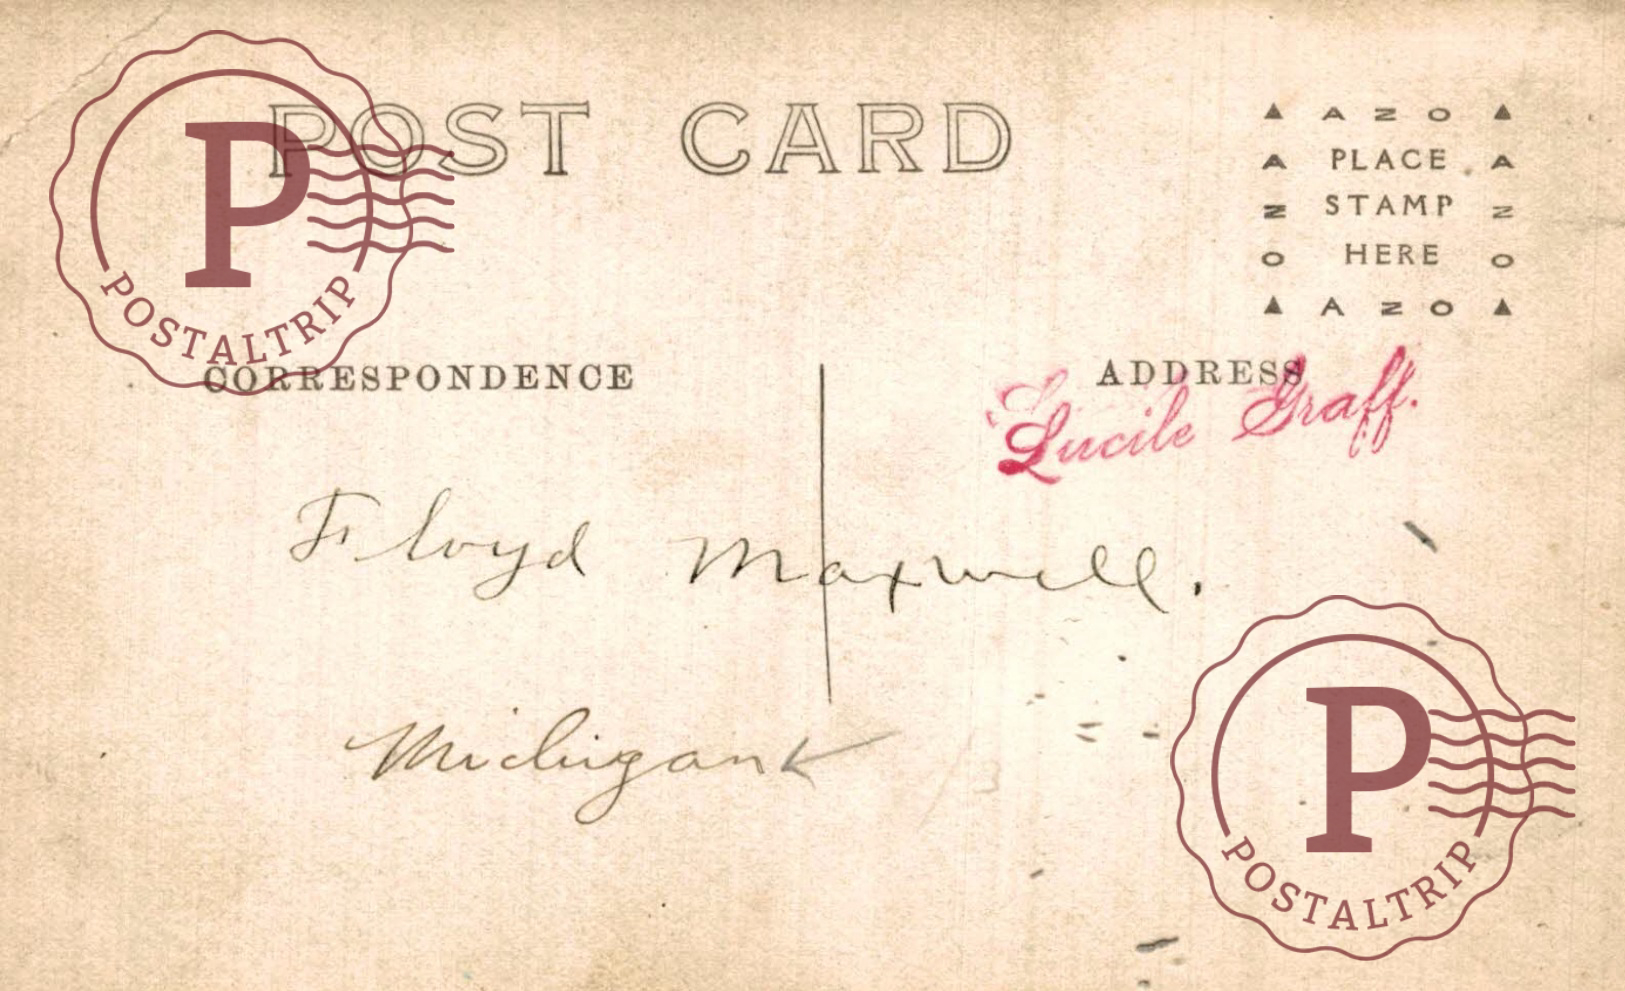 POST CARD
▲ A Z O ▲
A PLACE A
Z STAMP Z
O HERE O
▲ A Z O ▲
CORRESPONDENCE
ADDRESS
Lucile Graff.
Floyd Maxwell.
Michigan
P
POSTALTRIP
P
POSTALTRIP